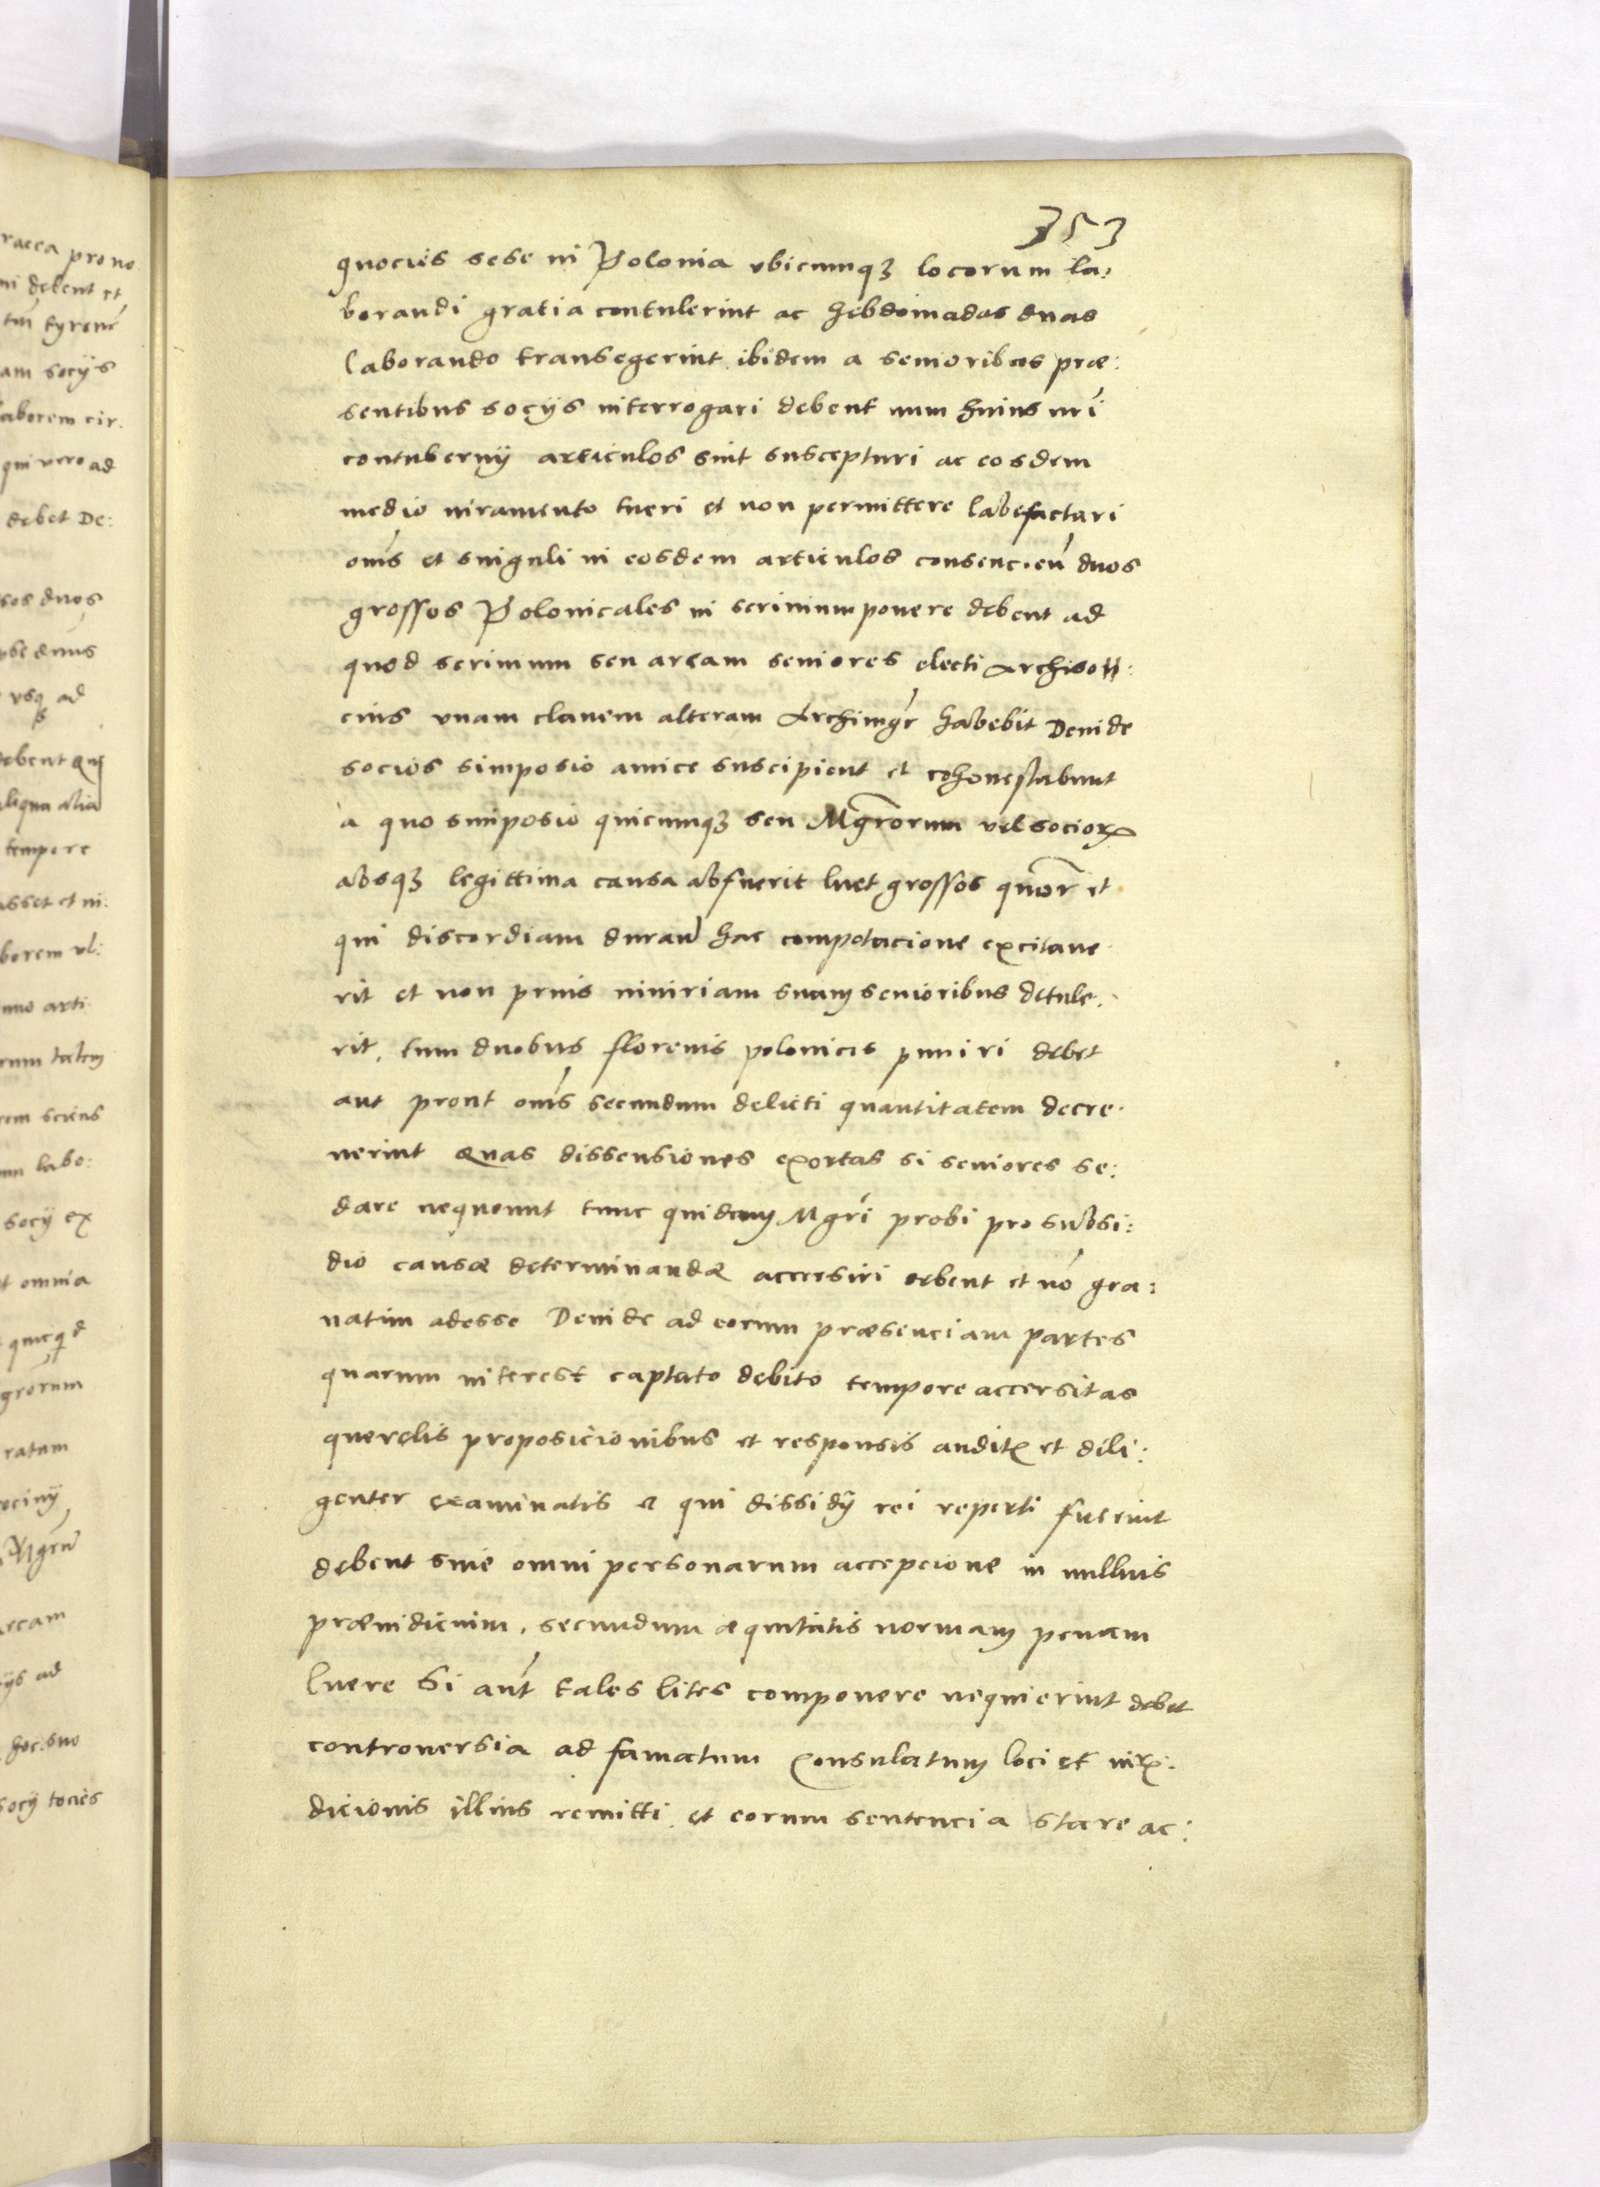 353
quocuis sese in Polonia vbicumqꝫ locorum la:
borandi gratia contulerint ac hebdomadas duas
laborando transegerint ibidem a senioribus præ:
sentibus socijs interrogari debent num huius nrĩ
contubernij articulos sint suscepturi ac eosdem
medio iuramento tueri et non permittere labefactari
oms̃ et singuli in eosdem articulos consenc.eñ duos
grossos Polonicales in scrinium ponere debent ad
quod scrinium seu arcam seniores electi Archiso
cius vnam clauem alteram Archimgr̃ habebit Deinde
socios simposio amice suscipient et cohonestabunt
à quo simposio quicumqꝫ seu Mgrõrum vel socioꝝ
absqꝫ legittima causa abfuerit luet grossos quãor et
qui discordiam durañ hac compotacione excitaue
rit et non prius iniuriam suam senioribus detule:
rit, tum duobus florenis polonicis puniri debet
aut prout oms̃ secundum delicti quantitatem decre:
uerint Quas dissensiones exortas si seniores se:
dare nequeunt tunc quidam Mgrĩ probi pro subsi:
dio causæ determinandæ accersiri debent et nõ gra:
uatim adesse Deinde ad eorum præsenciam partes
quarum interest captato debito tempore accersitas
querelis proposicionibus et responsis auditꝭ et dili:
genter examinatis & qui dissidij rei reperti fuerint
debent sine omni personarum accepcione in nullius
præiudicium, secundum æquitatis normam penam
luere Si aut̃ tales lites componere nequierint debet
controuersia ad famatum Consulatum loci et iurꝭ:
dicionis illius remitti et eorum sentencia stare ac: